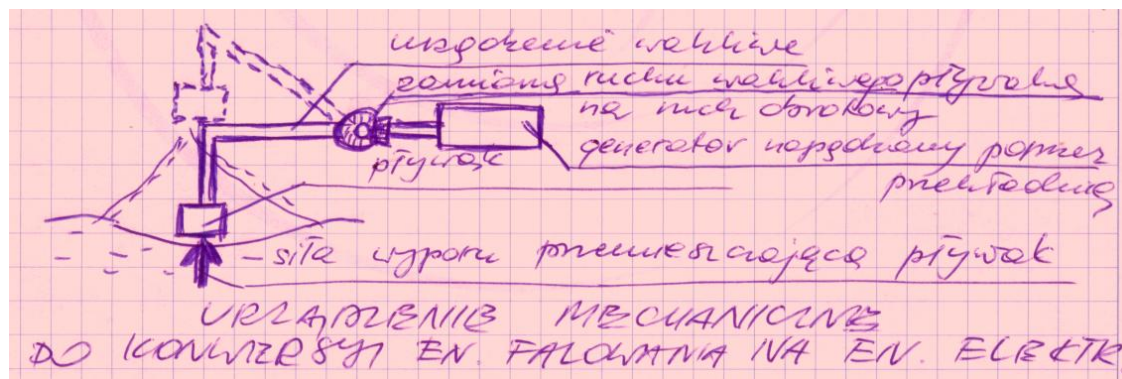 urządzenie wahliwe
zamiana ruchu wahliwego pływaka
na ruch obrotowy
generator napędzany poprzez
przekładnię
pływak
- siła wyporu przemieszczająca pływak
URZĄDZENIE MECHANICZNE
DO KONWERSYI EN. FALOWANIA NA EN. ELEKTR.